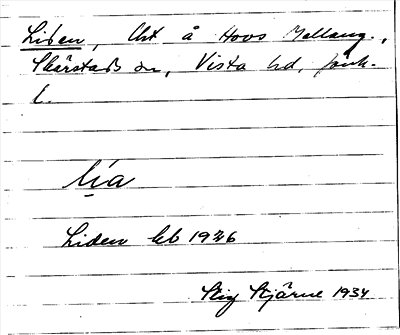 Liden, Uht å Hovs Mellang.,
Skärstads sn, Vista hd, Jönk.
l.
lia
Liden kb 1926
Stig Stjärne 1934